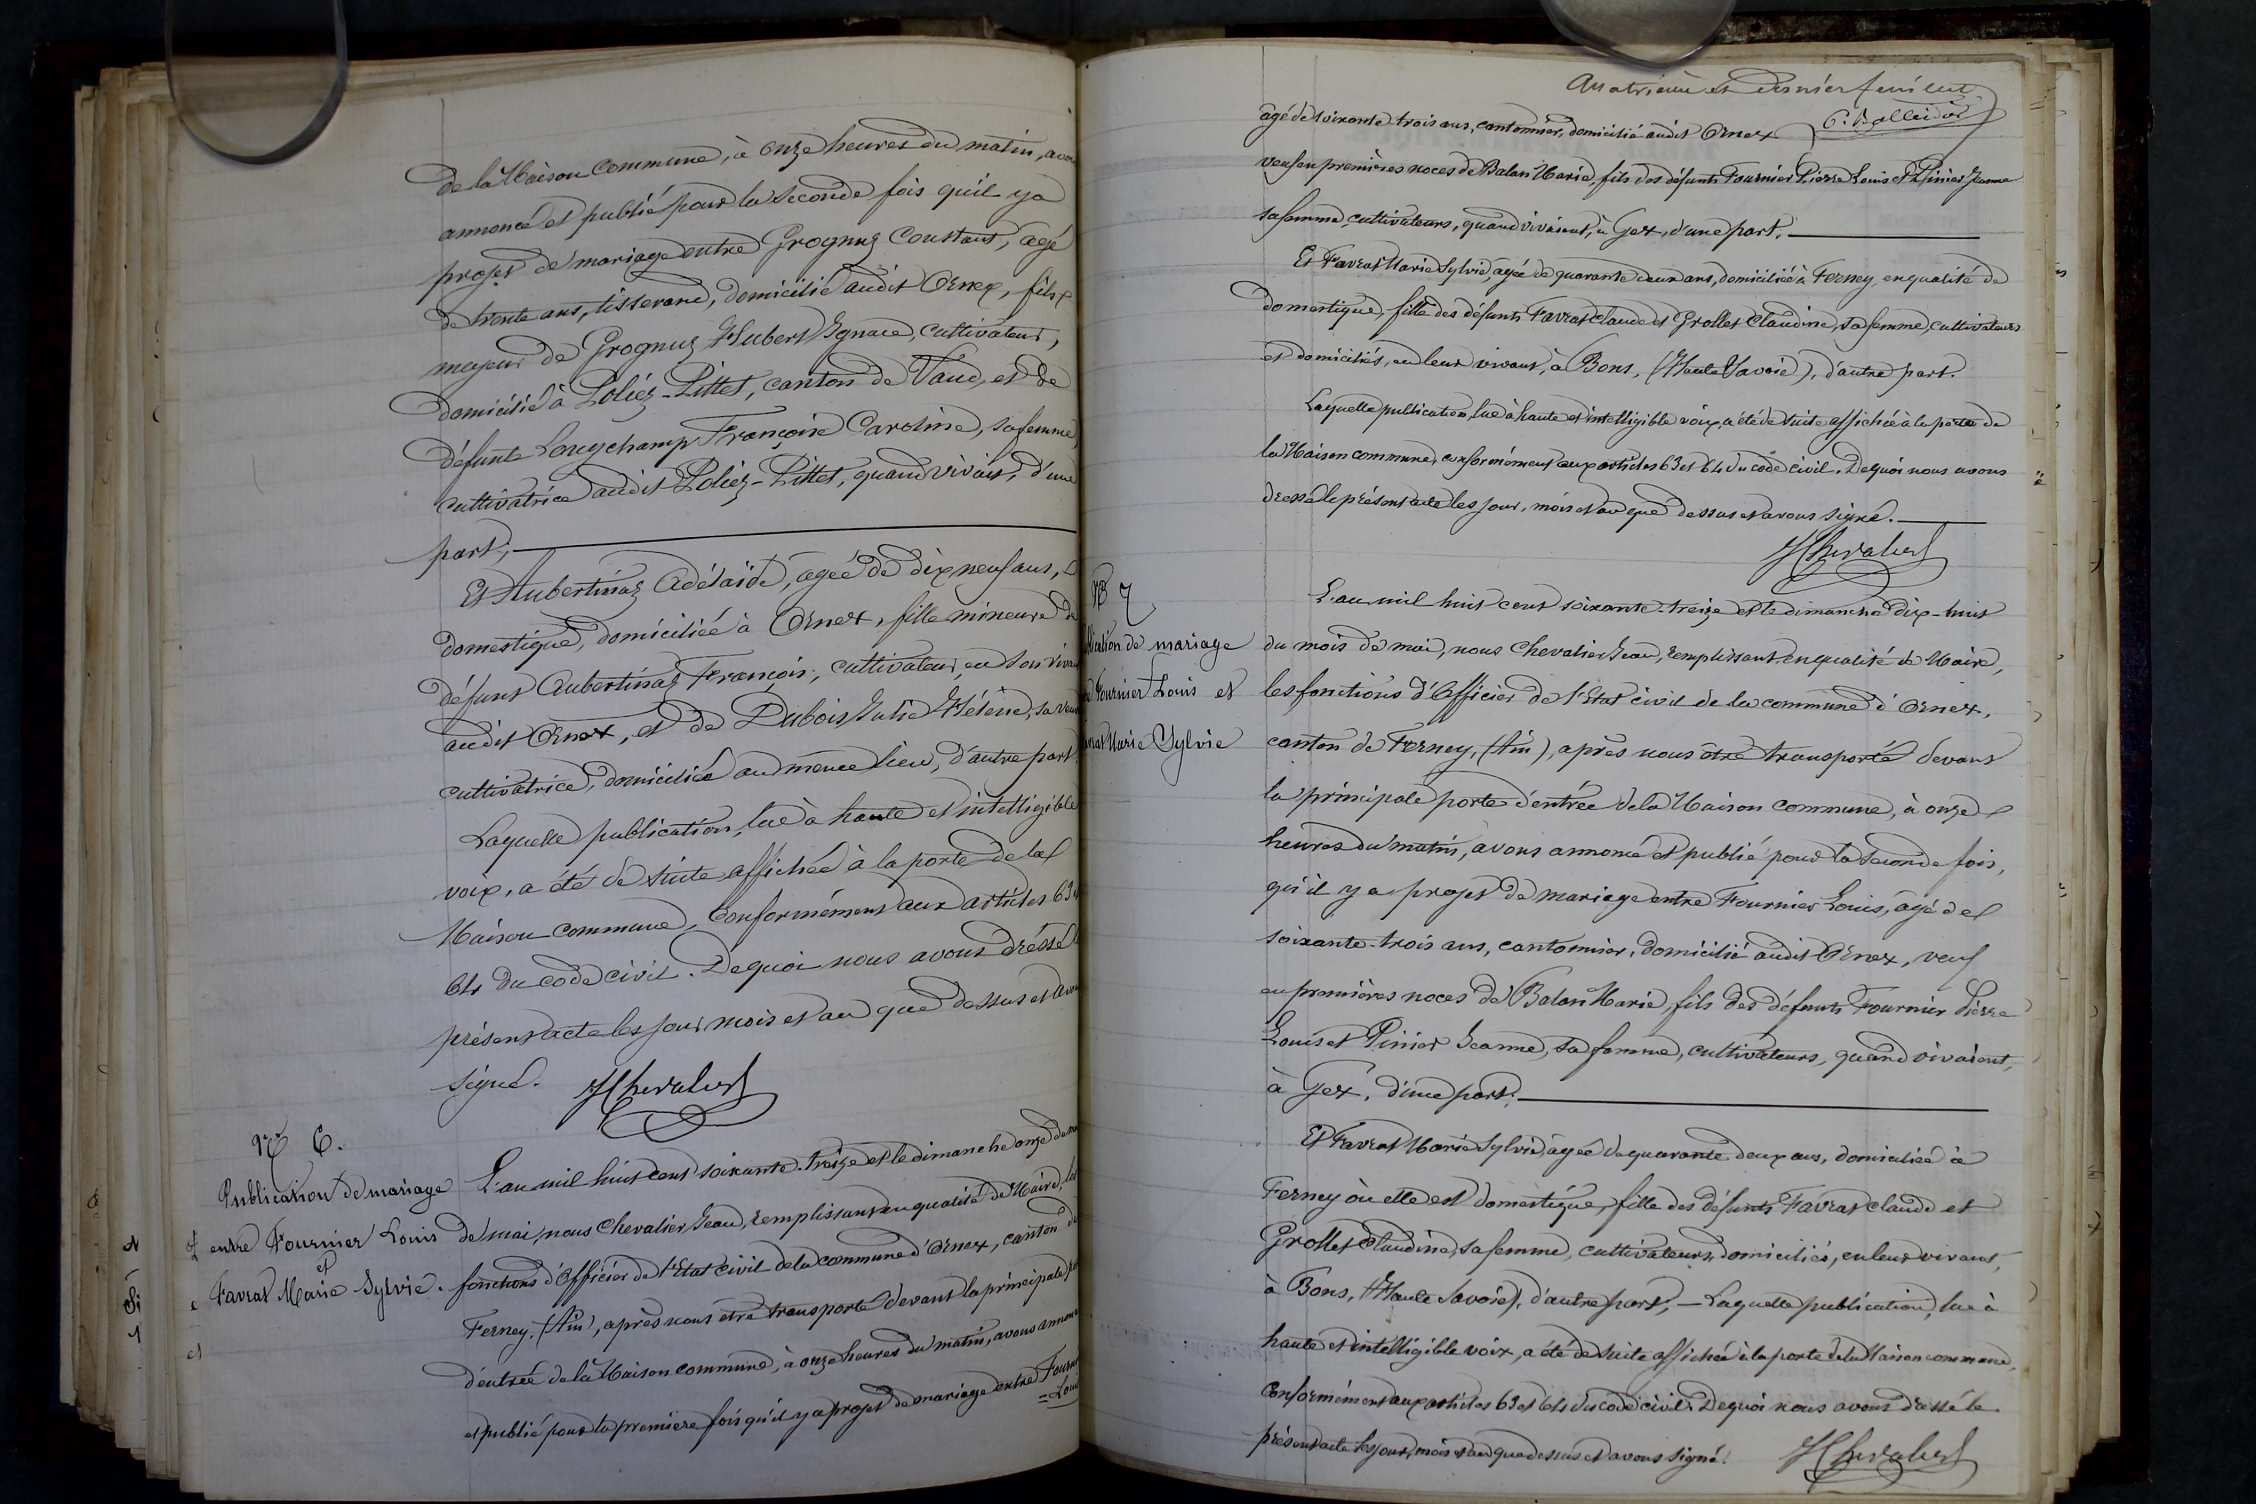 de la Maison commune, à onze heures du matin, avons
annoncé et publié pour la seconde fois qu'il y a
projet de mariage entre Grognuz Constant, agé
de trente ans, tisserand, domicilié audit Ornex, fils
majeur de Grognuz Hubert Ignace, cultivateur,
domicilié à Poliez-Pittet, canton de Vaud, et de
défunte Longchamp Françoise Caroline, sa femme,
cultivatrice audit Poliez-Pittet, quand vivait, d'une
part,
Et Aubertinaz Adélaïde, agée de dix neuf ans,
domestique, domiciliée à Ornex, fille mineure de
défunt Aubertinaz François, cultivateur, en son vivant
audit Ornex, et de Dubois Julie Hélène, sa veuve
cultivatrice, domiciliée au même lieu, d'autre part.
Laquelle publication, lue à haute et intelligible
voix, a été de suite affichée à la porte de la
Maison commune, conformément aux articles 63 et
64 du code civil. De quoi nous avons dréssé le
présent acte les jour, mois et an que dessus et avons
signé. JChevalier
No 6.
Publication de mariage
entre Fournier Louis
et
Favrat Marie Sylvie.
L'an mil huit cent soixante-treize et le dimanche onze du mois
de mai, nous Chevalier Jean, remplissant en qualité de Maire, les
fonctions d'Officier de l'Etat civil de la commune d'Ornex, canton de
Ferney, (Ain), après nous être transporté devant la principale porte
d'entrée de la Maison commune, à onze heures du matin, avons annoncé
et publié pour la première fois qu'il y a projet de mariage entre Fournier
=Louis
Quatrième et dernier feuillet
agé de soixante trois ans, cantonnier, domicilié audit Ornex
veuf en premières noces de Balan Marie, fils des défunts Fournier Pierre Louis et Pinier Jeanne
sa femme, cultivateurs, quand vivaient, à Gex, d'une part.
Et Favrat Marie Sylvie, agée de quarante deux ans, domiciliée à Ferney, en qualité de
domestique, fille des défunts Favrat Claude et Grollet Claudine, sa femme, cultivateurs
et domiciliés, en leur vivant, à Bons, (Haute Savoie), d'autre part.
Laquelle publication, lue à haute et intelligible voix, a été de suite affichée à la porte de
la Maison commune, conformément aux articles 63 et 64 du code civil. De quoi nous avons
dressé le présent acte les jour, mois et an que dessus et avons signé.
JChevalier
No 7
Publication de mariage
entre Fournier Louis et
Favrat Marie Sylvie
L'an mil huit cent soixante-treize et le dimanche dix-huit
du mois de mai, nous Chevalier Jean, remplissant en qualité de Maire,
les fonctions d'Officier de l'Etat civil de la commune d'Ornex,
canton de Ferney, (Ain), après nous être transporté devant
la principale porte d'entrée de la Maison commune, à onze
heures du matin, avons annoncé et publié pour la seconde fois,
qu'il y a projet de mariage entre Fournier Louis, agé de
soixante-trois ans, cantonnier, domicilié audit Ornex, veuf
en premières noces de Balan Marie, fils des défunts Fournier Pierre
Louis et Pinier Jeanne, sa femme, cultivateurs, quand vivaient,
à Gex, d'une part.
Et Favrat Marie Sylvie, agée de quarante deux ans, domiciliée à
Ferney où elle est domestique, fille des défunts Favrat Claude et
Grollet Claudine, sa femme, cultivateurs, domiciliés, en leur vivant,
à Bons, (Haute Savoie), d'autre part, — Laquelle publication, lue à
haute et intelligible voix, a été de suite affichée à la porte de la Maison commune,
conformément aux articles 63 et 64 du code civil. De quoi nous avons dréssé le
présent acte les jour, mois et an que dessus et avons signé. JChevalier